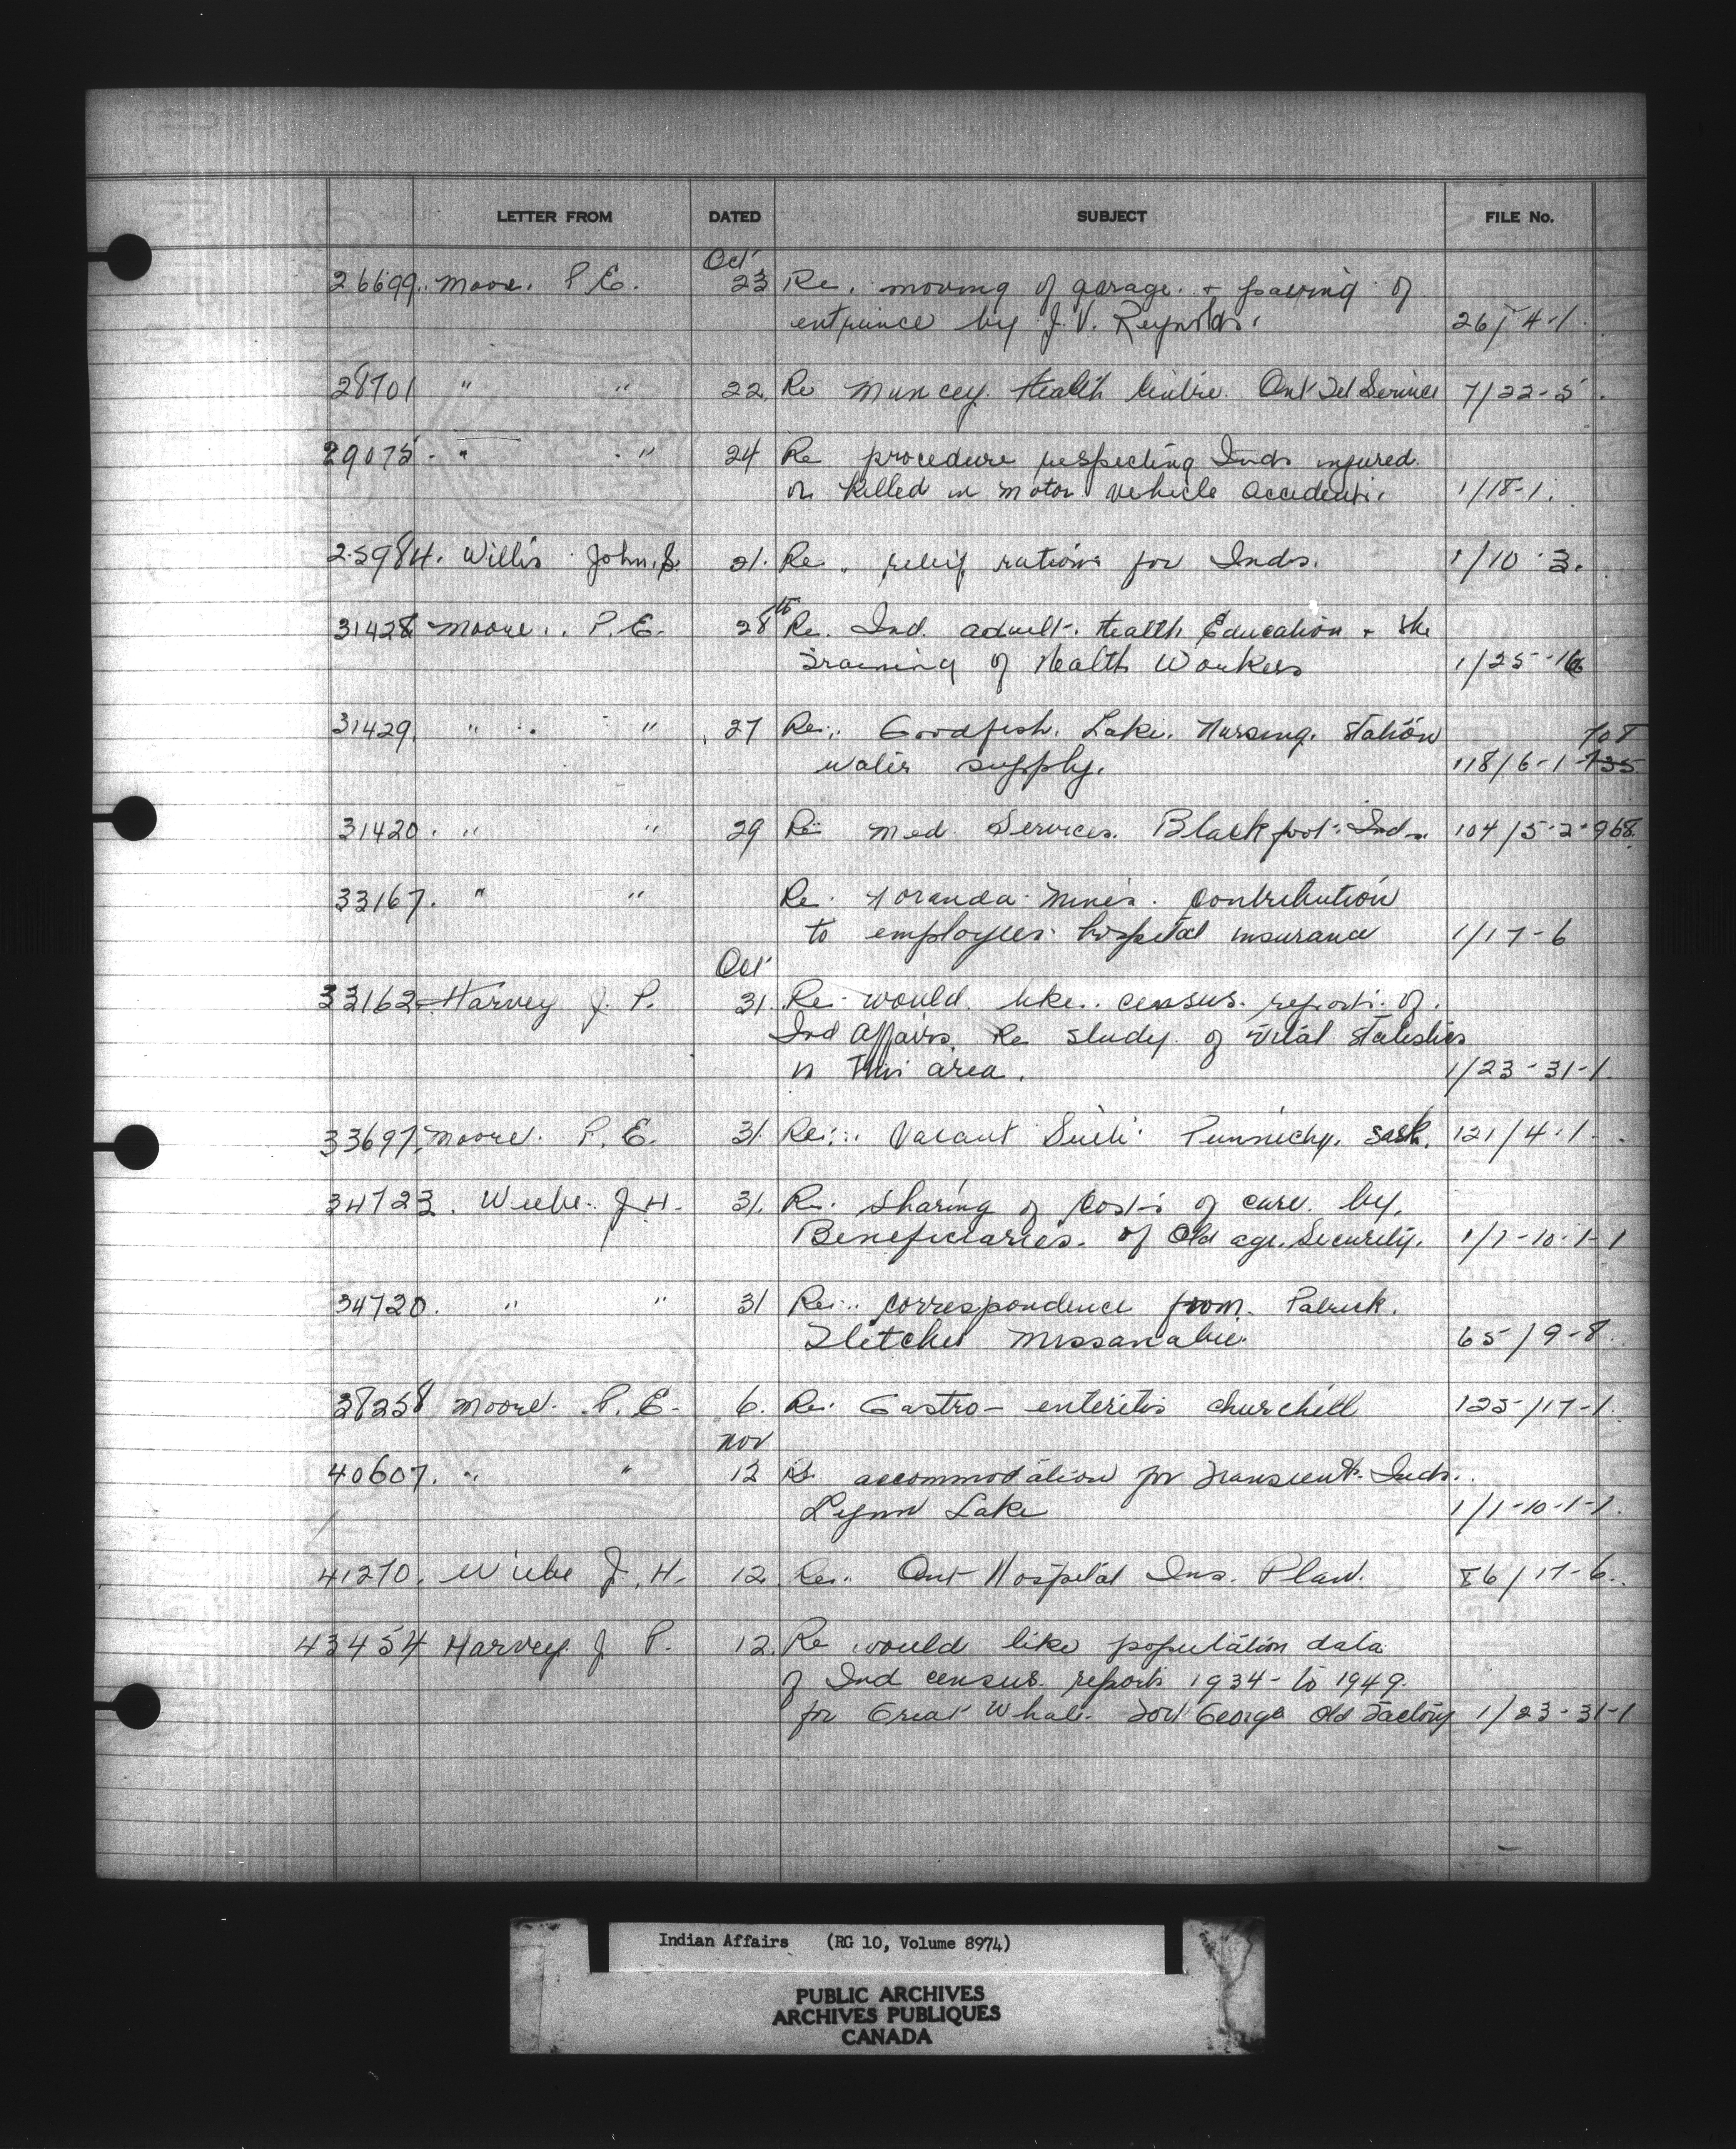 LETTER FROM DATED SUBJECT FILE No.
Oct
26699. Moore. P.E. 23 Re. moving of garage. + paving of
entrance by J.V. Reynolds. 26/ 4-1.
28701 " " 22. Re Muncey. Health Centre. Ont Tel Service 7/22-5.
29075. " " 24 Re procedure respecting Inds injured
or killed in motor vehicle accidents. 1/18-1.
25984. Willis John. S. 21. Re. relief rations for Inds. 1/10-3.
31428 Moore. P.E. 28th Re. Ind. adult. Health Education + the
Training of Health Workers 1/25-16
31429. " " 27 Re. Goodfish. Lake. Nursing. Station 708
water supply. 118/6-1-735
31420. " " 29 Re Med. Services. Blackfoot. Inds. 104/5-2-968.
33167. " " Re. Noranda Mines. Contribution
to employees hospital insurance 1/17-6
Oct
33162 Harvey J. P. 31. Re. would like census. reports of.
Ind Affairs. Re study of vital statistics
in this area. 1/23-31-1.
33697. Moore. P.E. 31. Re: Vacant Punnichy. Sask. 121/4-1.
34723. Wiebe. J.H. 31. Re. sharing of costs of care by.
Beneficiaries. of Old age. Security. 1/1-10-1-1
34720. " " 31 Re. correspondence from. Patrick.
Fletcher Missanabie. 65/9-8.
38258 Moore. P.E. 6. Re. Gastro-enteritis Churchill 125/17-1.
Nov
40607. " " 12 Re accommodation for Transient. Inds.
Lynn Lake 1/1-10-1-1.
41270. Wiebe J.H. 12. Re. Ont Hospital Ins. Plan. 86/17-6.
43454 Harvey J P. 12. Re would like population data
of Ind census. reports 1934- to 1949.
for Great Whale. Fort George Old Factory 1/23-31-1
Indian Affairs (RG 10, Volume 8974)
PUBLIC ARCHIVES
ARCHIVES PUBLIQUES
CANADA